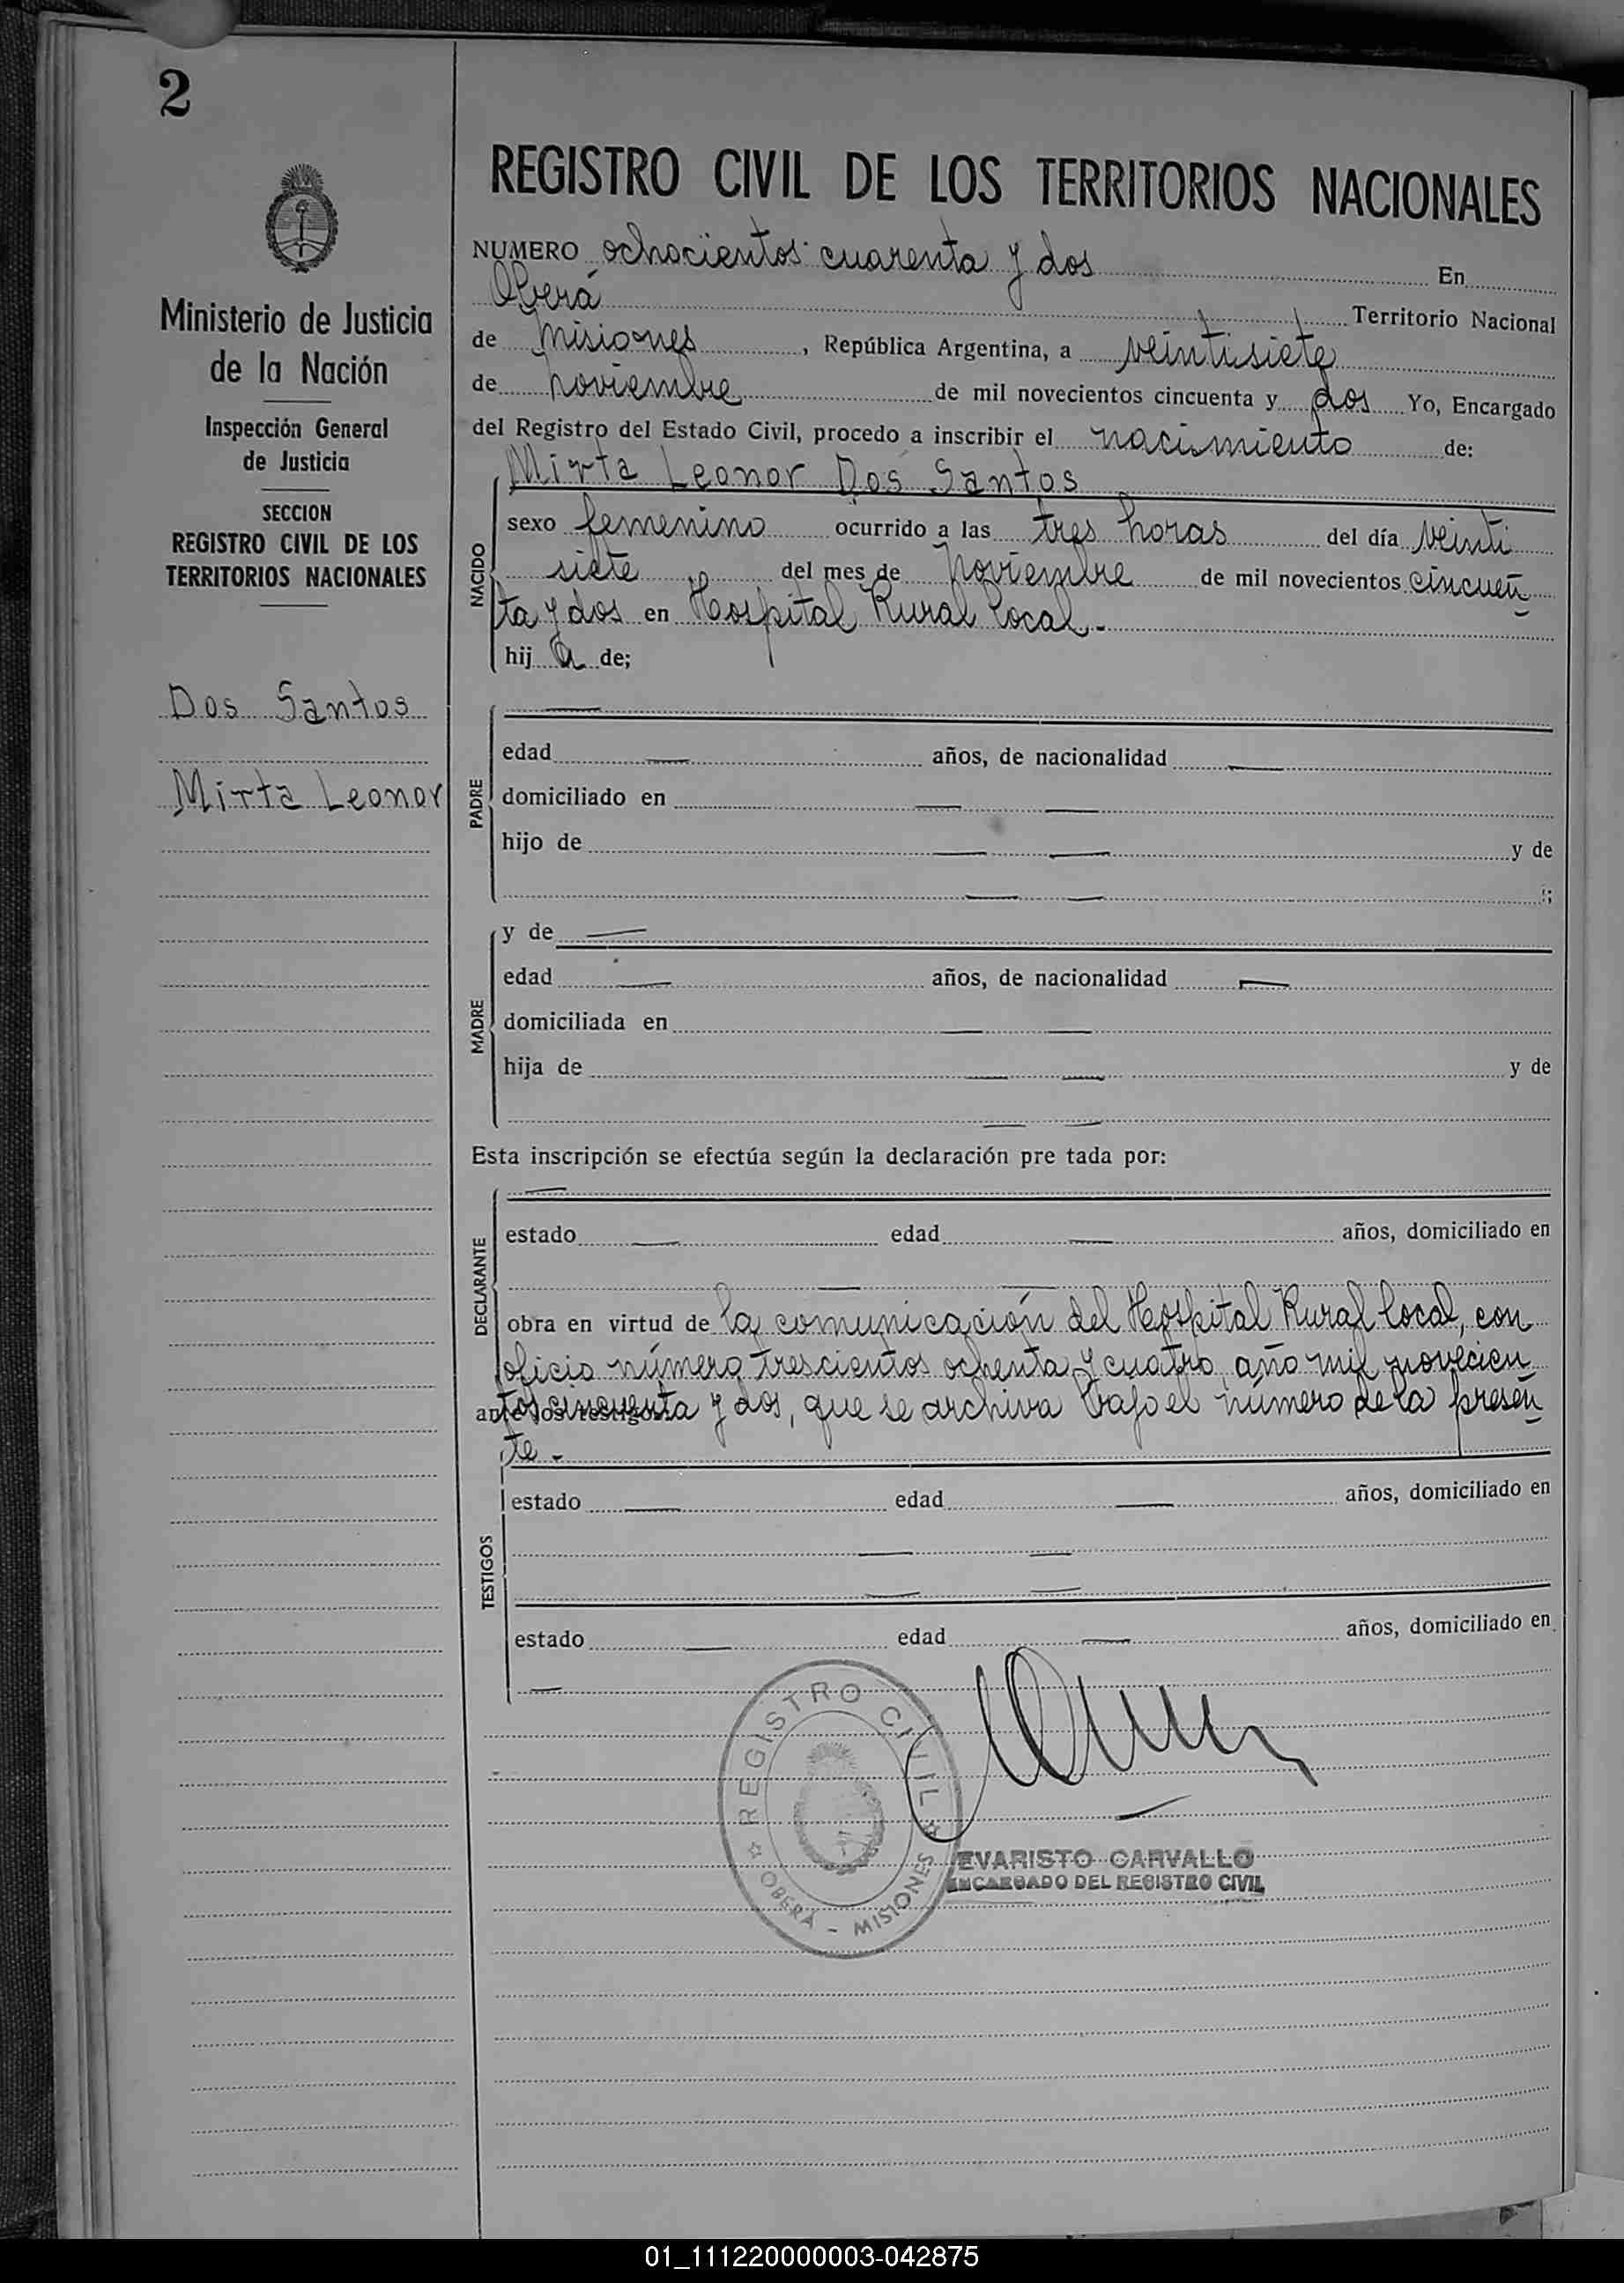 2
REGISTRO CIVIL DE LOS TERRITORIOS NACIONALES
Ministerio de Justicia
de la Nación
Inspección General
de Justicia
SECCION
REGISTRO CIVIL DE LOS
TERRITORIOS NACIONALES
Dos Santos
Mirta Leonor
NUMERO ochocientos cuarenta y dos En
Oberá Territorio Nacional
de Misiones, República Argentina, a veintisiete
de noviembre de mil novecientos cincuenta y dos Yo, Encargado
del Registro del Estado Civil, procedo a inscribir el nacimiento de:
Mirta Leonor Dos Santos
NACIDO
sexo femenino ocurrido a las tres horas del día veinti
siete del mes de noviembre de mil novecientos cincuen
ta y dos en Hospital Rural local.-
hij a de;
PADRE
—
edad — años, de nacionalidad —
domiciliado en — —
hijo de — — y de
— — ;
MADRE
y de —
edad — años, de nacionalidad —
domiciliada en — —
hija de — — y de
— —
Esta inscripción se efectúa según la declaración pre tada por:
DECLARANTE
—
estado — edad — años, domiciliado en
— —
obra en virtud de la comunicación del Hospital Rural local, con
oficio número trescientos ochenta y cuatro año mil novecien
ante los testigos:
tos cincuenta y dos, que se archiva bajo el número de la presen
te.-
TESTIGOS
estado — edad — años, domiciliado en
— —
— —
estado — edad — años, domiciliado en
—
REGISTRO CIVIL
OBERÁ - MISIONES
EVARISTO CARVALLO
ENCARGADO DEL REGISTRO CIVIL
01_111220000003-042875